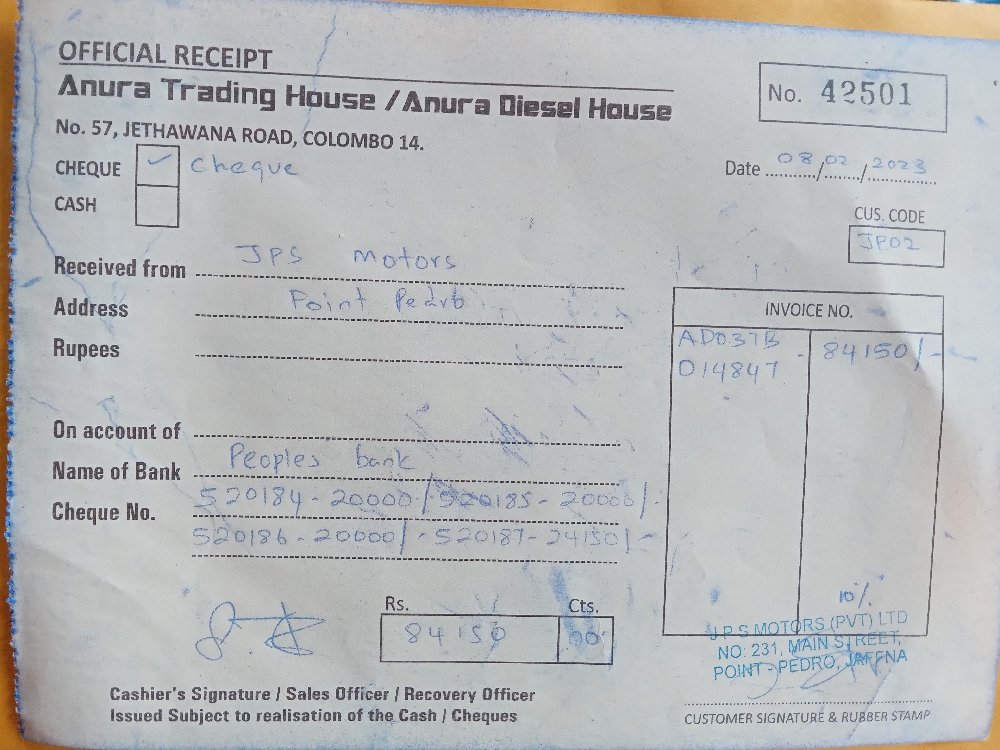 OFFICIAL RECEIPT
Anura Trading House / Anura Diesel House
No. 42501
No. 57, JETHAWANA ROAD, COLOMBO 14.
CHEQUE ✓ cheque
Date 08/02/2023
CASH
CUS. CODE
JP02
Received from JPS motors
Address Point Pedro
Rupees
INVOICE NO.
AD037B
014847 - 84150/-
On account of
Name of Bank Peoples bank
Cheque No. 520184-20000/-520185-20000/-
520186-20000/-520187-24150/-
10%
Rs. Cts.
84150 00
J P S MOTORS (PVT) LTD
NO: 231, MAIN STREET,
POINT - PEDRO, JAFFNA
Cashier's Signature / Sales Officer / Recovery Officer
Issued Subject to realisation of the Cash / Cheques
CUSTOMER SIGNATURE & RUBBER STAMP